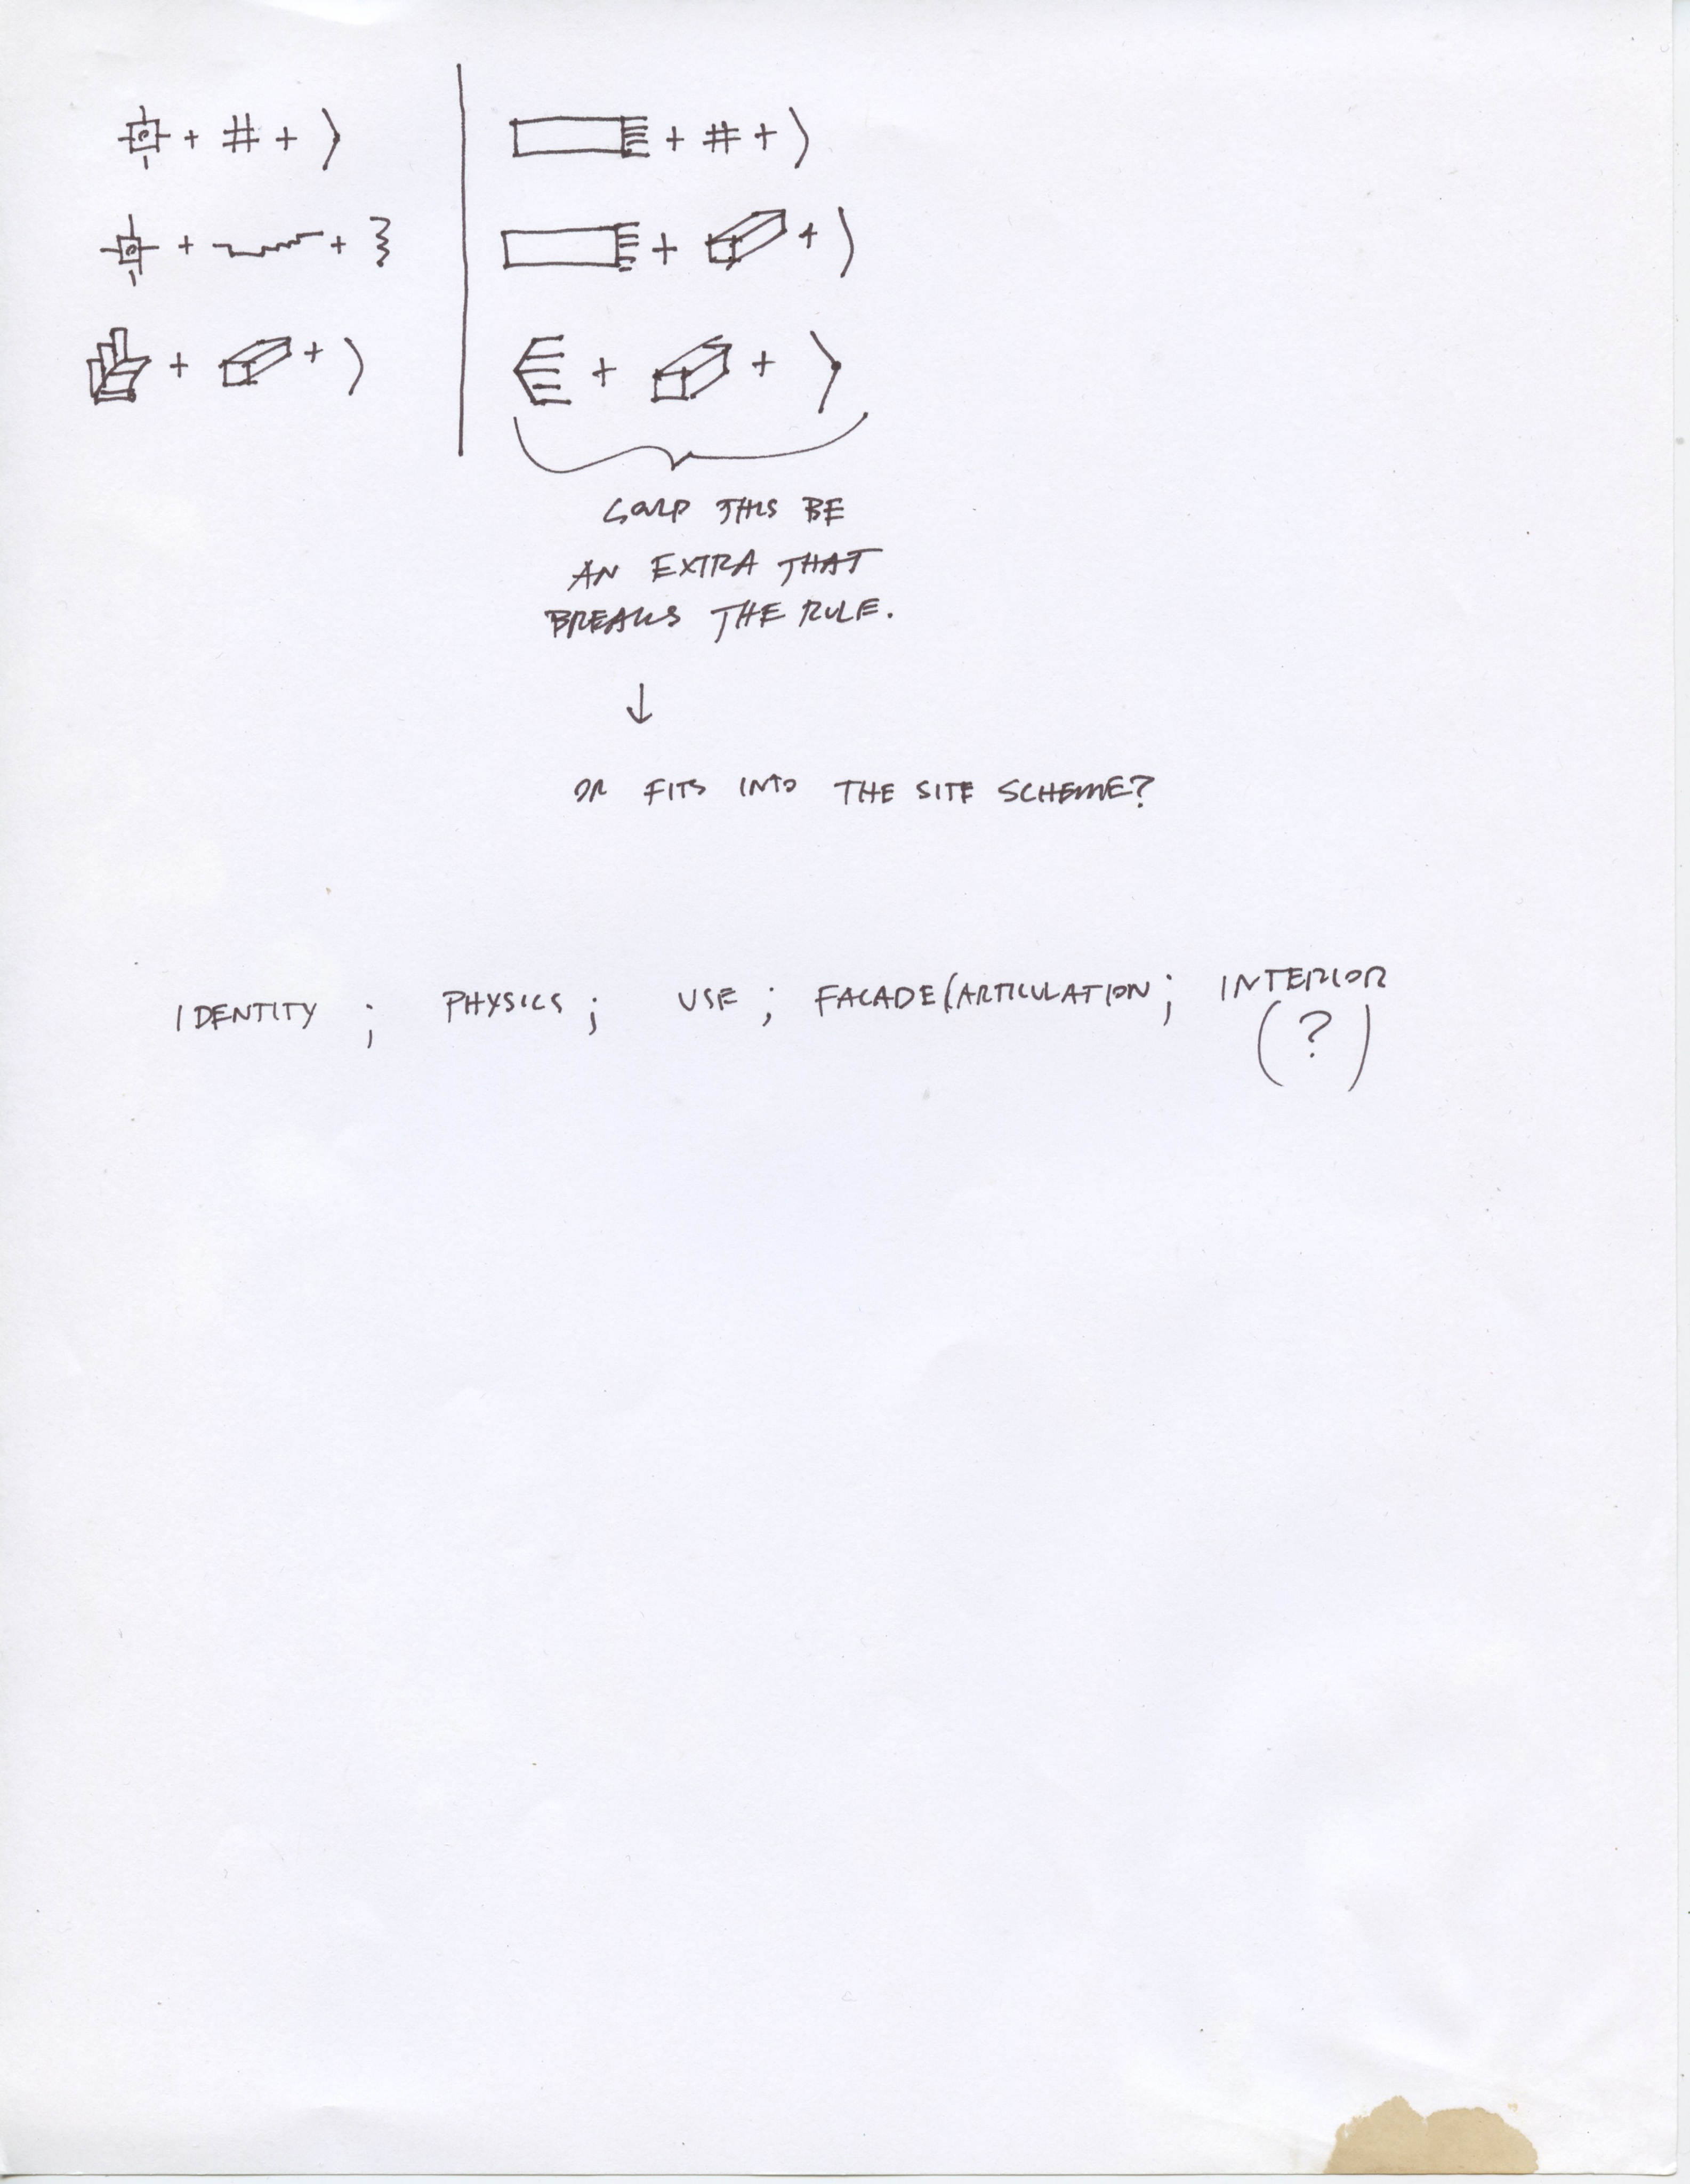 COULD THIS BE
AN EXTRA THAT
BREAKS THE RULE.
↓
OR FITS INTO THE SITE SCHEME?
IDENTITY ; PHYSICS ; USE ; FACADE/ARTICULATION ; INTERIOR
(?)